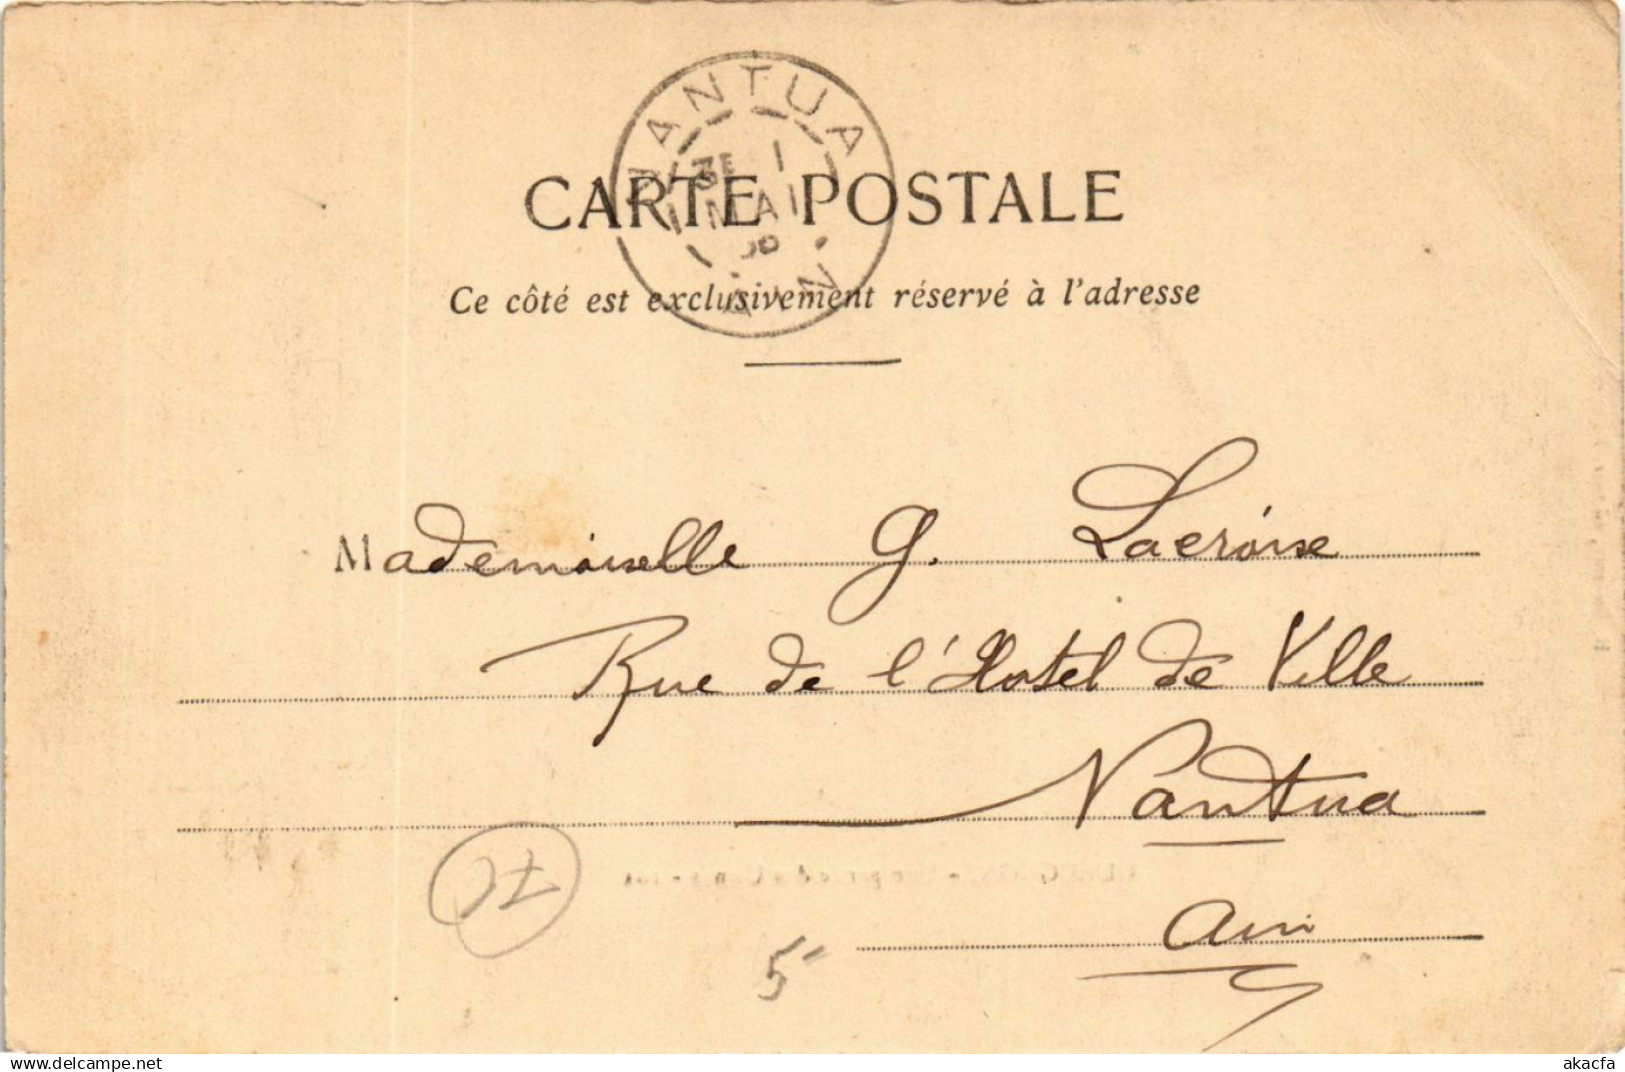 NANTUA
3E 1
MAI
06
AIN
CARTE POSTALE
Ce côté est exclusivement réservé à l'adresse
Mademoiselle G. Lacroix
Rue de l'Hotel de Ville
Nantua
Ain
5
www.delcampe.net
akacfa